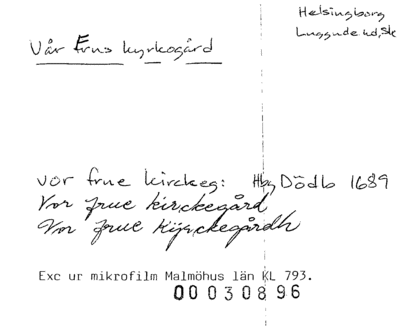 Helsingborg
Luggude hd, Sk
Vår Frus kyrkogård
vor frue kirckeg: Hbg Dödb 1689
Vor frue kirckegård
Vor frue Kijrckegårdh
Exc ur mikrofilm Malmöhus län KL 793.
00030896